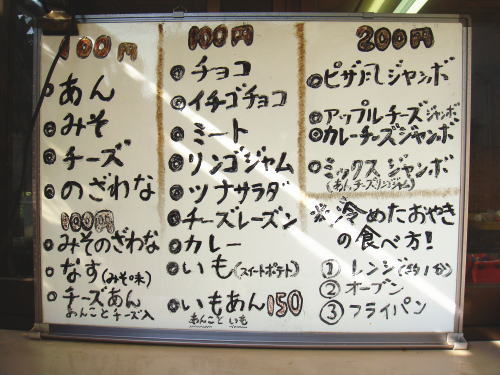 100円
あん
みそ
チーズ
のざわな
100円
みそのざわな
なす(みそ味)
チーズあん
あんことチーズ入
100円
チョコ
イチゴチョコ
ミート
リンゴジャム
ツナサラダ
チーズレーズン
カレー
いも(スイートポテト)
いもあん150
あんこと いも
200円
ジャンボ
アップルチーズジャンボ
カレーチーズジャンボ
ミックスジャンボ
(あん,チーズ,リンゴジャム)
※冷めたおやき
の食べ方!
① レンジ(約1分)
② オーブン
③ フライパン